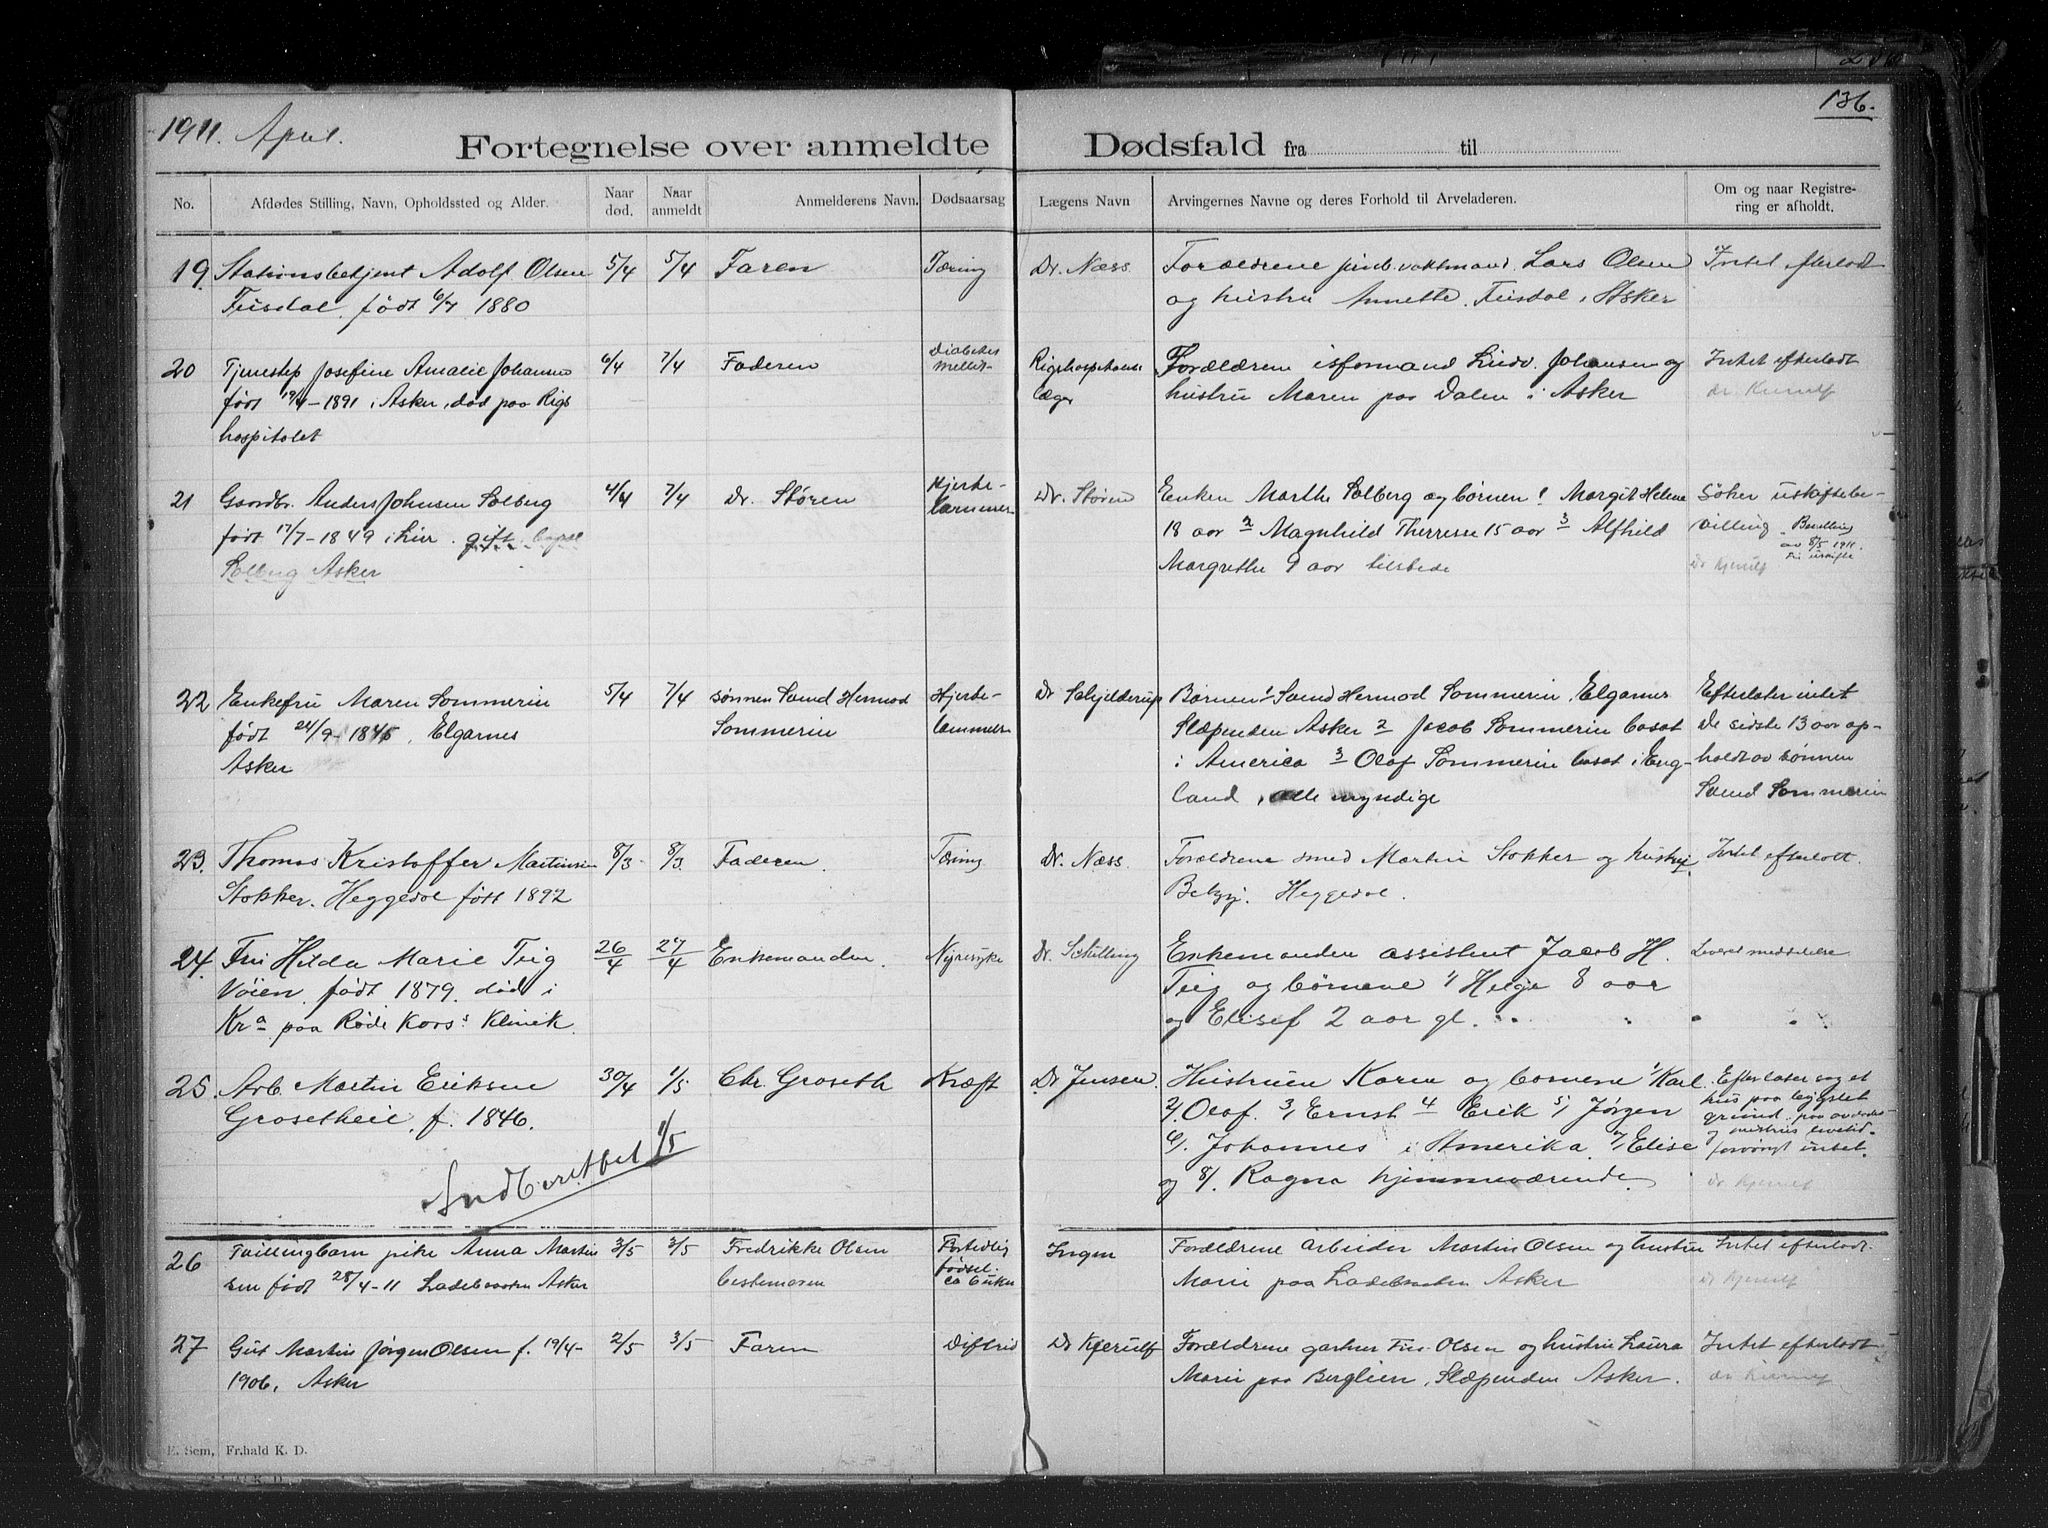 1911. April.
136.
Fortegnelse over anmeldte Dødsfald fra til
No.
Afdødes Stilling, Navn, Opholdssted og Alder.
Naar død.
Naar anmeldt
Anmelderens Navn.
Dødsaarsag
Lægens Navn
Arvingernes Navne og deres Forhold til Arveladeren.
Om og naar Registrering er afholdt.
19. Stationsbetjent Adolf Olsen
Fusdal, født 6/4 1880
5/4
5/4
Faren
Tæring
Dr. Næss.
Forældrene Lars Olsen
og hustru Annette Fusdal i Asker
Intet efterladt
20 Tjenestep Josefine Amalie Johansen
født 19/4-1891 i Asker, død paa Rigs
hospitalet
6/4
7/4
Faderen
Diabetes
mellit-
Rigshospitalets
læger
Forældrene isformand Ludv. Johansen og
hustru Maren paa Dalen i Asker
Intet efterladt
dr. Kierulf
21 Gaardbr. Anders Johnsen Solberg
født 17/7-1849 i Lier. gift.
Solberg Asker
4/4
7/4
Dr. Støren
Hjerte-
lammelse
Dr. Støren
Enken Marthe Solberg og børnene 1 Margit Helene
18 aar 2 Magnhild Therese 15 aar 3 Alfhild
Margrethe 9 aar tilstede
Søker uskiftebe-
villing. Bevilling
av 8/5 1911.
Dr Kjerulf
22 Enkefru Maren Sommerin
født 24/9-1845, Elgarnes
Asker
5/4
7/4
sønnen Svend Hermod
Sommerin
Hjerte-
lammelse
Dr Schjelderup
Børnene 1 Svend Hermod Sommerin, Elgarnes
Slæpenden Asker 2 Jacob Sommerin bosat
i America 3 Olaf Sommerin bosat i Eng-
land, alle myndige
Efterlater intet
De sidste 13 aar op-
holdt av sønnen
Svend Sommerin
23. Thomas Kristoffer Martinsen
Stokker. Heggedal født 1892
8/3
8/3
Faderen.
Tæring
Dr. Næss.
Forældrene smed Martin Stokker og hustru
Betzy. Heggedal.
Intet efterladt.
24. Fru Hilda Marie Teig
Vøien, født 1879. død i
Kra paa Røde Kors's Klinik.
26/4
27/4
Enkemanden.
Nyresyke
Dr. Schilling
Enkemanden assistent Jacob H.
Teig og børnene 1/ Helge 8 aar
og Elisef 2 aar gl.
Leveret meddelelse
25. Arb. Martin Eriksen
Grosetheie, f. 1846.
30/4
1/5
Chr. Groseth
Kræft
Dr Jensen.
Hustruen Karen og børnene 1 Karl
2/ Olaf. 3/ Ernst 4 Erik 5/ Jørgen
6/. Johannes i Amerika 7/ Elise
og 8/. Ragna hjemmeværende
Efterlater sig et
hus paa bygslet
grund. paa avdødes
og hustrus livstid.
forøvrigt intet.
Dr Kjerulf
Indberettet 1/5
26 Tvillingbarn pike Anna Martin
sen født 28/4-11 Asker
3/5
3/5
Fredrikke Olsen
bestemoren
Fortidlig
fødsel.
ca 6 uker
Ingen
Forældrene arbeider Martin Olsen og hustru
Marie paa Asker
Intet efterladt.
Dr Kjerulf
27 Gut Martin Jørgen Olsen f. 19/4-
1906, Asker
2/5
3/5
Faren
Difterid
Dr Kjerulf
Forældrene gartner Olsen og hustru Laura
Marie paa Berglien, Slæpenden Asker.
Intet efterladt
dr Kierulf
E. Sem, Fr.hald K. D.